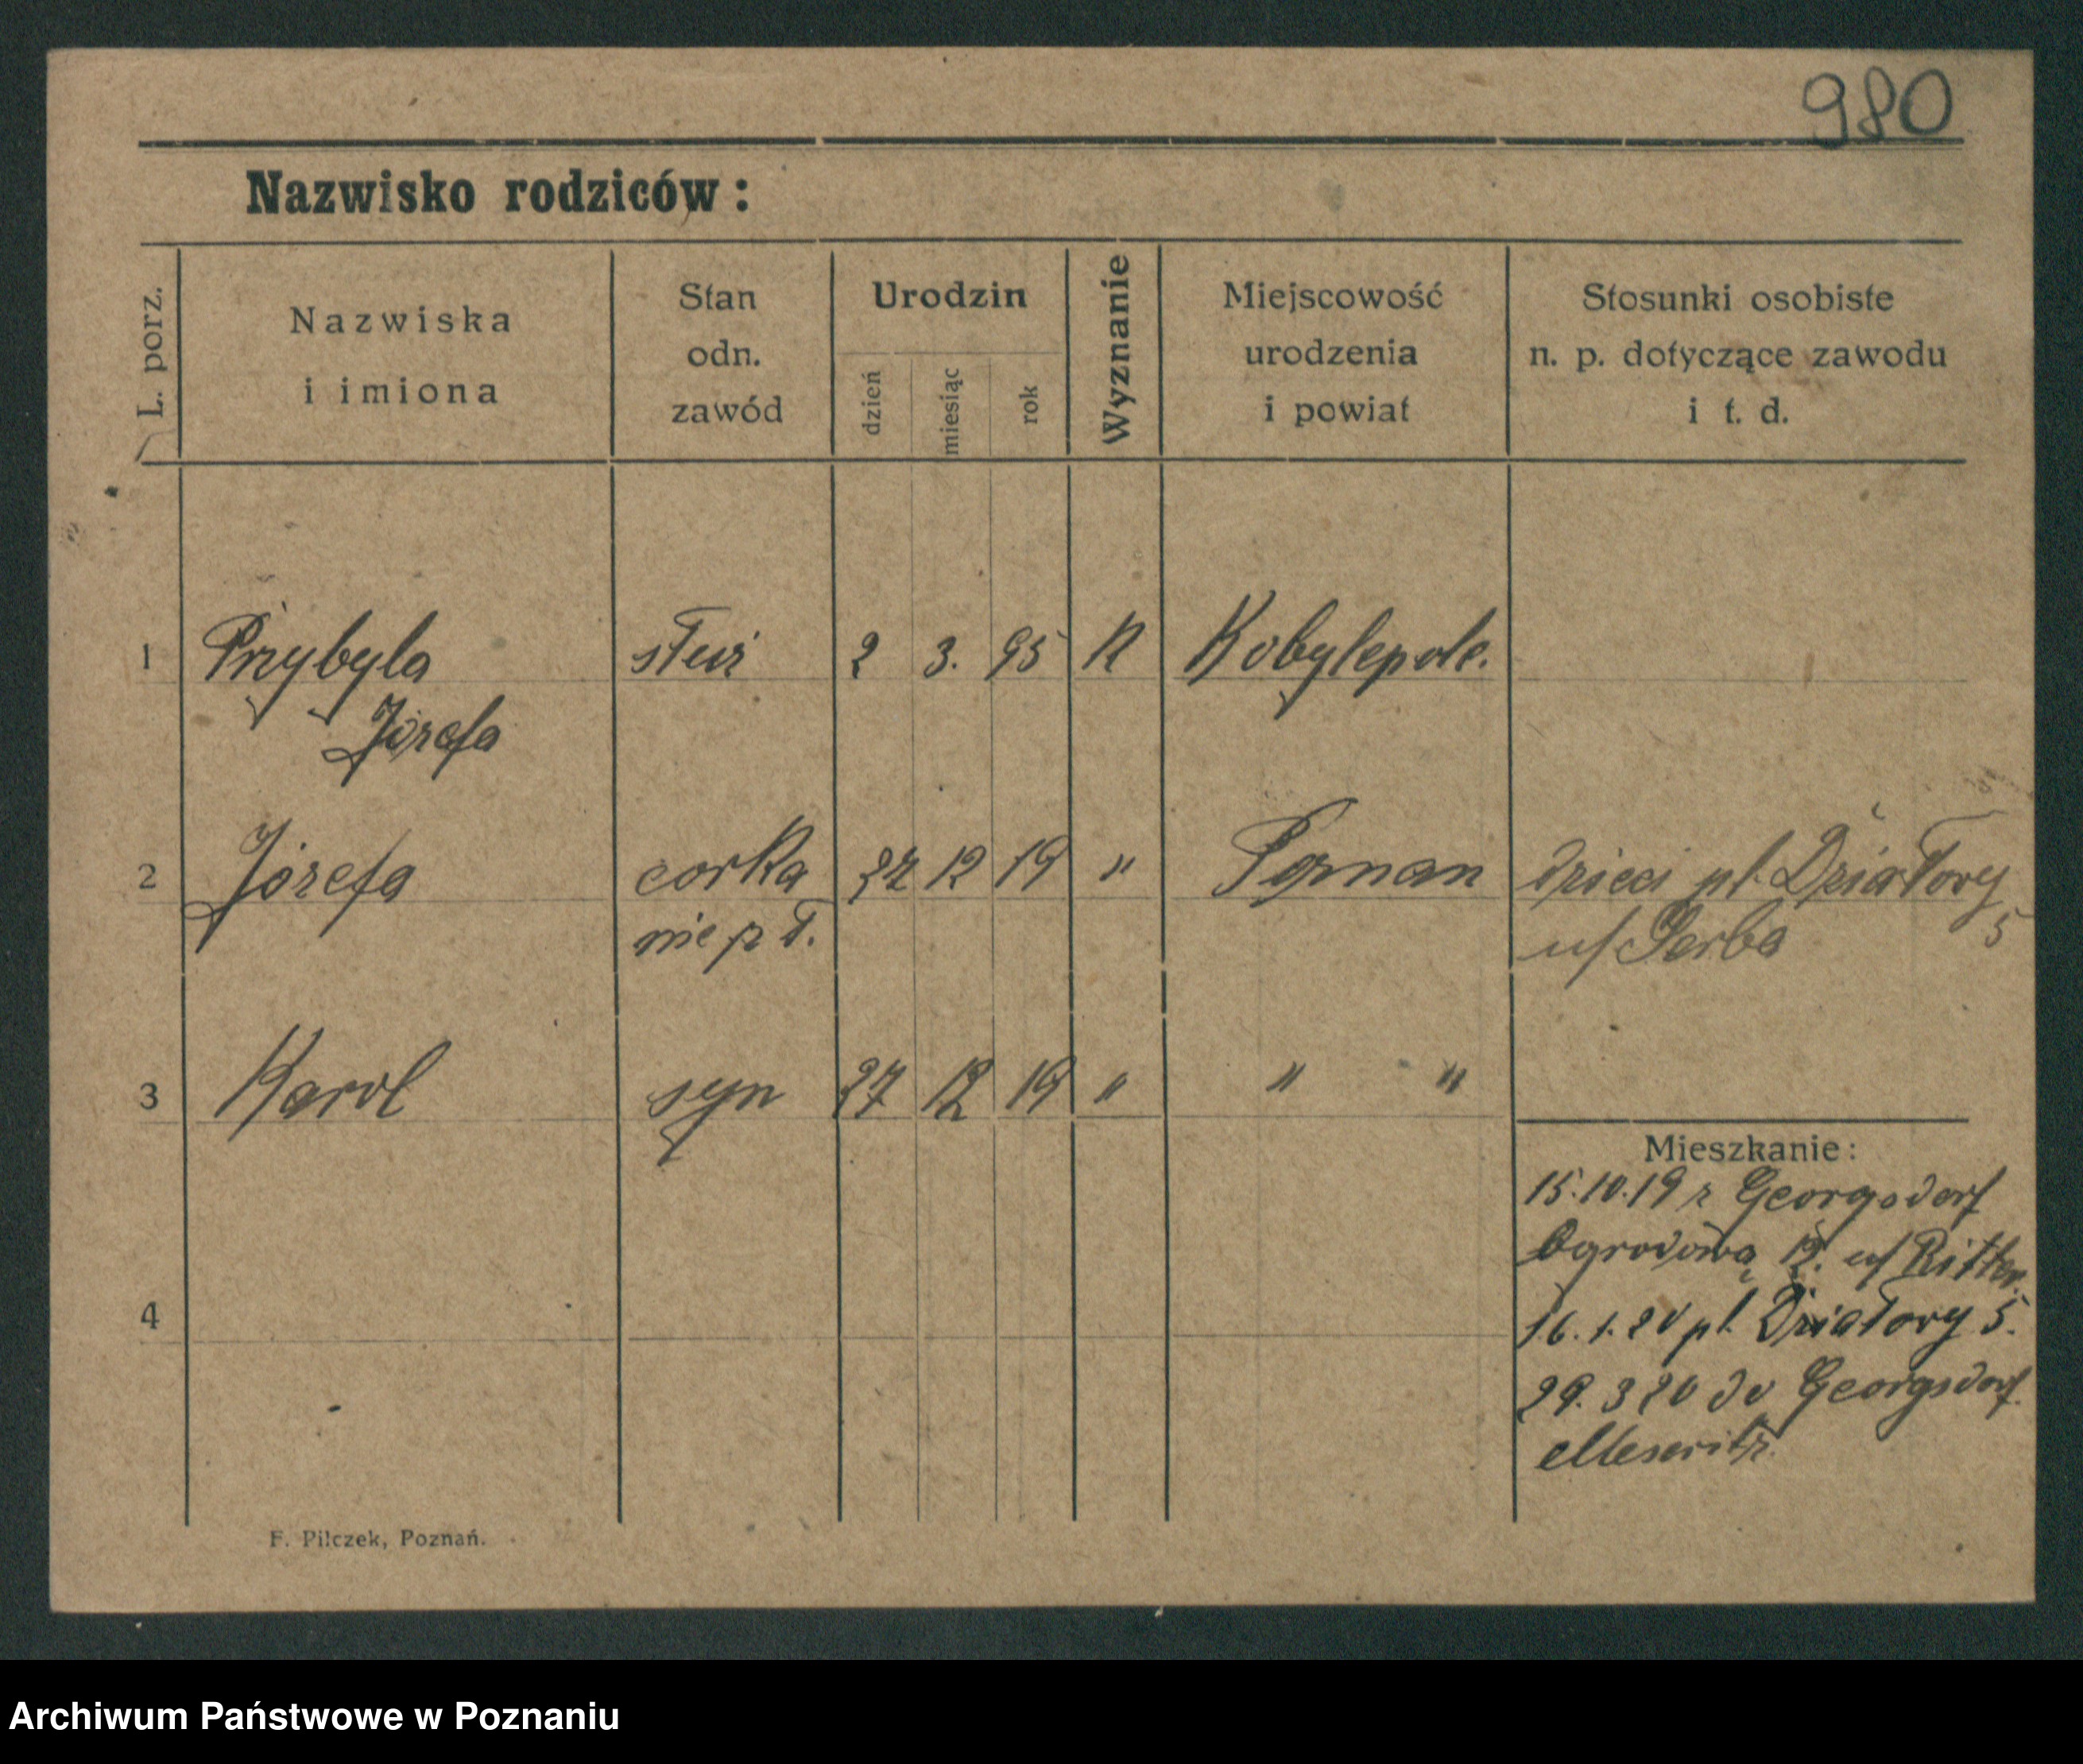 980
Nazwisko rodziców:
L. porz.
Nazwiska
i imiona
Stan
odn.
zawód
Urodzin
dzień
miesiąc
rok
Wyznanie
Miejscowość
urodzenia
i powiat
Stosunki osobiste
n. p. dotyczące zawodu
i t. d.
1 Przybyla służ 2 3. 95 K Kobylepole.
Józefa
2 Józefa corka 27 12 19 " Poznan dzieci pl. Działowy 5
nie pł. u/ Serba
3 Karol syn 27 12 19 " " "
Mieszkanie:
15.10.19 z Georgsdorf
Ogrodowa 12. u/ Ritter.
16.1.20 pl. Działowy 5.
4
29.3 20 do Georgsdorf.
Meseritz.
F. Pilczek, Poznań.
Archiwum Państwowe w Poznaniu